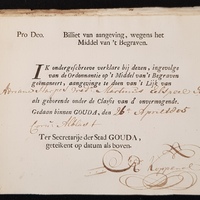 Pro Deo. Billiet van aangeving, wegens het
Middel van 't Begraven.
IK ondergeschreven verklare bij dezen, ingevolge
van de Ordonnantie op 't Middel van 't Begraven
geëmaneert, aangevinge te doen van 't Lijk van
als gehorende onder de Classis van d'onvermogende.
Gedaan binnen GOUDA, den 26 April 1805
Ter Secretarije der Stad GOUDA,
geteikent op datum als boven.